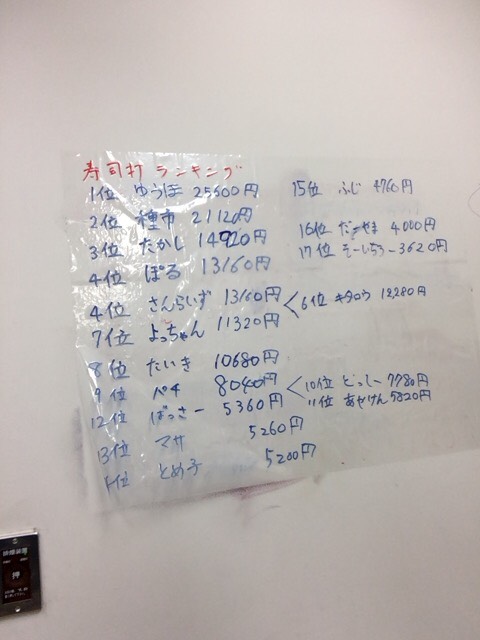 寿司打 ランキング
1位 ゆうほ 25600円
2位 種市 21120円
3位 たかし 14920円
4位 ぽる 13160円
4位 さんらいず 13160円
6位 キタロウ 12,280円
7位 よっちゃん 11320円
8位 たいき 10680円
9位 ペチ 8040円
10位 どっしー 7780円
11位 あやけん 5820円
12位 ばっさー 5360円
13位 マサ 5260円
14位 とめ子 5200円
15位 ふじ 4760円
16位 だーやま 4000円
17位 そーしちろー 3620円
押